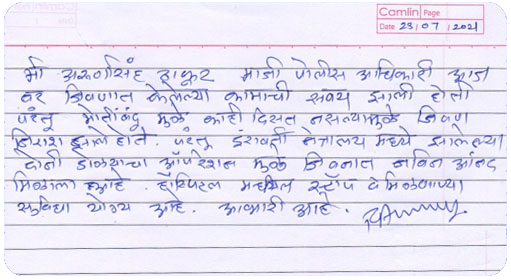 Camlin Page
Date 23 / 07 / 2021
मी अरुणसिंह ठाकूर माजी पोलीस अधिकारी आज
वर जिवणात केलेल्या कामाची सवय झाली होती
परंतू मोतीबिंदू मुळे काही दिसत नसल्यामुळे जिवण
निराश झाले होते. परंतू इरावती नेत्रालय मध्ये झालेल्या
दोन्ही डोळ्याचा ऑपरेशन मुळे जिवनात नविन आंनद
मिळाला आहे. हॉस्पिटल मधील स्टॉप व मिळणाऱ्या
सुविधा योग्य आहे. आभारी आहे.